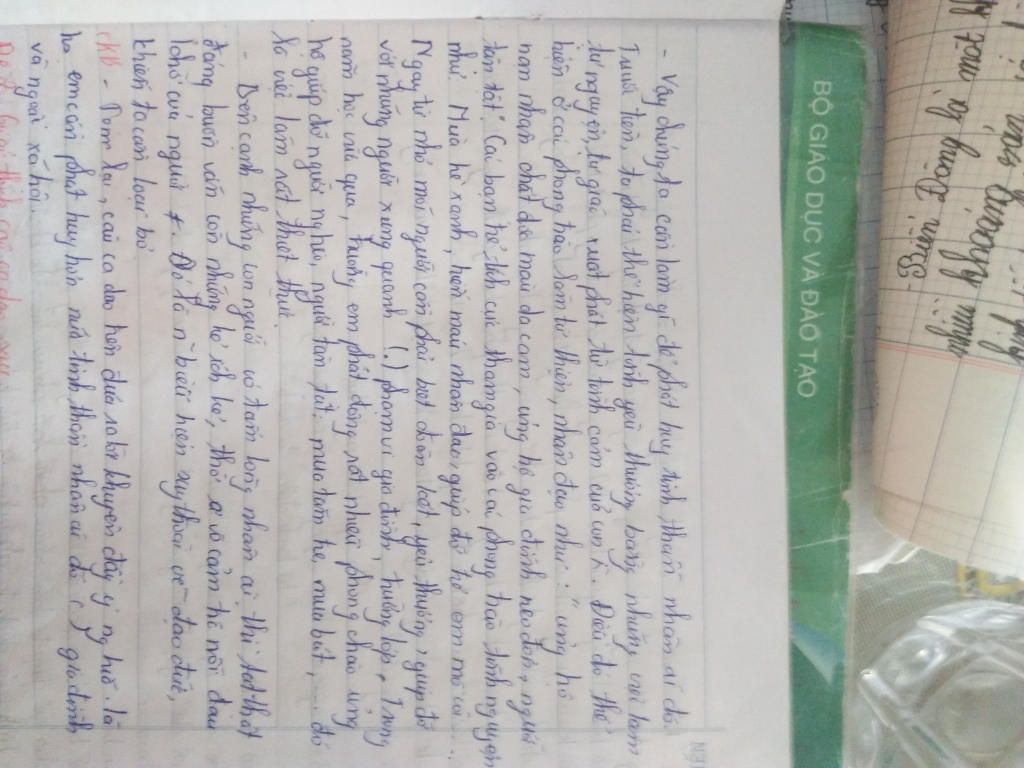 - Vậy chúng ta cần làm gì để phát huy tinh thần nhân ái đó.
Trước tiên, ta phải thể hiện tình yêu thương bằng những việc làm
tự nguyện, tự giác xuất phát từ tình cảm của con ng. Điều đó thể
hiện ở các phong trào làm từ thiện, nhân đạo như: "ủng hộ
nạn nhân chất độc màu da cam, ủng hộ gia đình neo đơn, người
tàn tật". Các bạn trẻ tích cực tham gia vào các phong trào tình nguyện
như: Mùa hè xanh, hiến máu nhân đạo, giúp đỡ trẻ em mồ côi...
Ngay từ nhỏ mỗi người cần phải biết đoàn kết, yêu thương, giúp đỡ
với những người xung quanh (.) phạm vi gia đình, trường lớp, Trong
năm học vừa qua, trường em phát động rất nhiều phong trào ủng
hộ giúp đỡ người nghèo, người tàn tật: mua tăm tre, mua bút,... đó
là việc làm rất thiết thực.
- Bên cạnh những con người có tấm lòng nhân ái thì thật
đáng buồn vẫn còn những kẻ ích kỉ, thờ ơ vô cảm trc nỗi đau
khổ của người ≠. Đó là n~ biểu hiện suy thoái về đạo đức,
khiến ta cần loại bỏ.
KB - Tóm lại, câu ca dao trên đúc là lời khuyên đầy ý nghĩa. Là
hs em cần phát huy hơn nữa tinh thần nhân ái đó (.) gia đình
và ngoài xã hội.
Đề 2: Giải thích câu ca dao sau
BỘ GIÁO DỤC VÀ ĐÀO TẠO